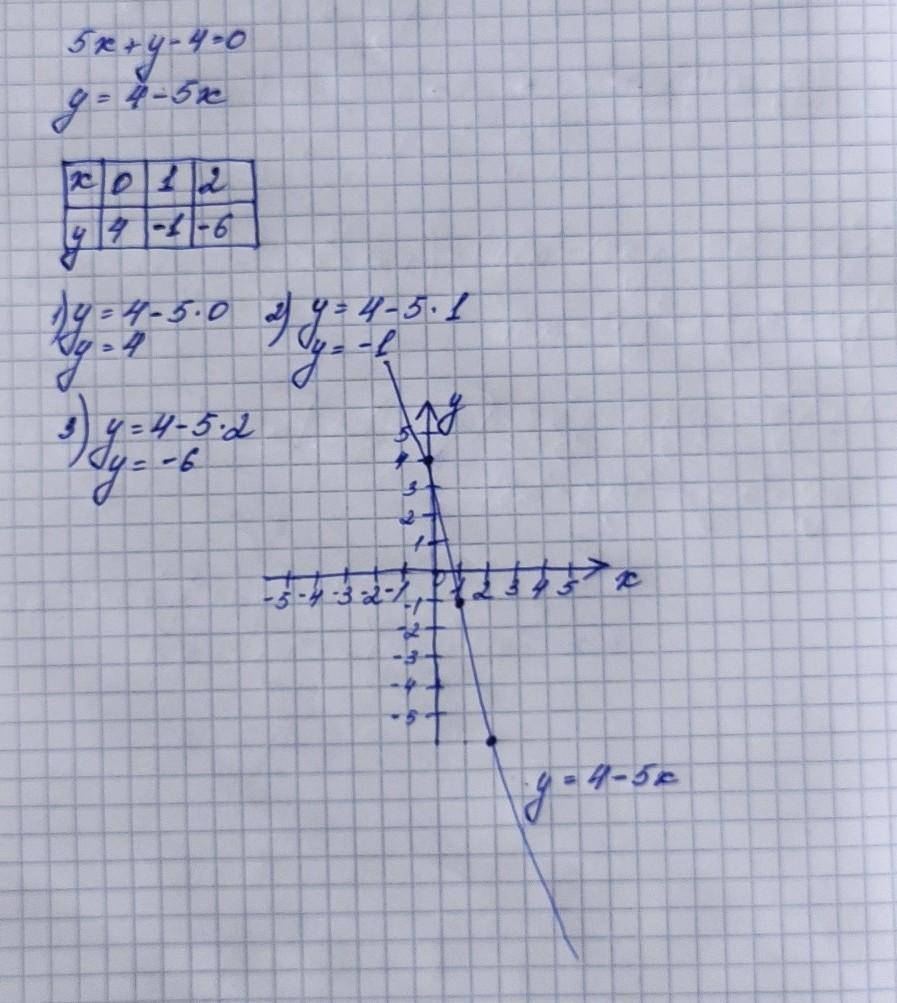 5x+y-4=0
y=4-5x
x 0 1 2
y 4 -1 -6
1) y=4-5·0 2) y=4-5·1
y=4 y=-1
3) y=4-5·2
y=-6
y
5
4
3
2
1
-5 -4 -3 -2 -1 0 1 2 3 4 5 x
-1
-2
-3
-4
-5
y=4-5x